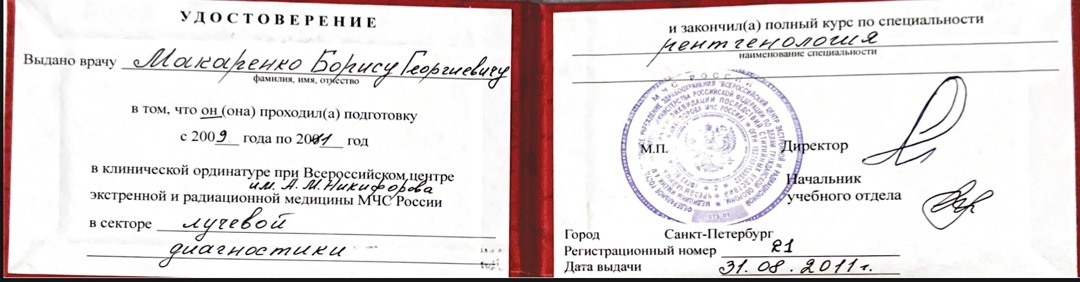 УДОСТОВЕРЕНИЕ
Выдано врачу Макаренко Борису Георгиевичу
фамилия, имя, отчество
в том, что он (она) проходил(а) подготовку
с 2009 года по 2011 год
в клинической ординатуре при Всероссийском центре
им. А.М.Никифорова
экстренной и радиационной медицины МЧС России
в секторе лучевой
диагностики
и закончил(а) полный курс по специальности
рентгенология
наименование специальности
МЧС РОССИИ
М.П.
Директор
Начальник
учебного отдела
Город Санкт-Петербург
Регистрационный номер 21
Дата выдачи 31.08.2011г.